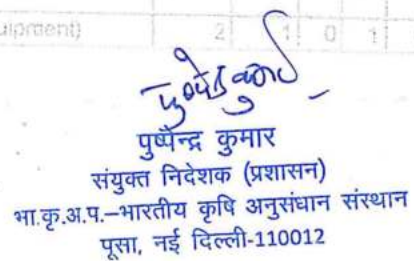 uipment) 2 1 0 1
पुष्पेन्द्र कुमार
संयुक्त निदेशक (प्रशासन)
भा.कृ.अ.प.–भारतीय कृषि अनुसंधान संस्थान
पूसा, नई दिल्ली-110012